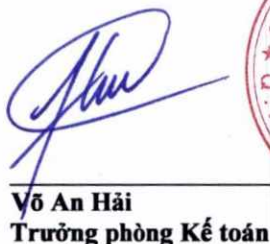 Võ An Hải
Trưởng phòng Kế toán